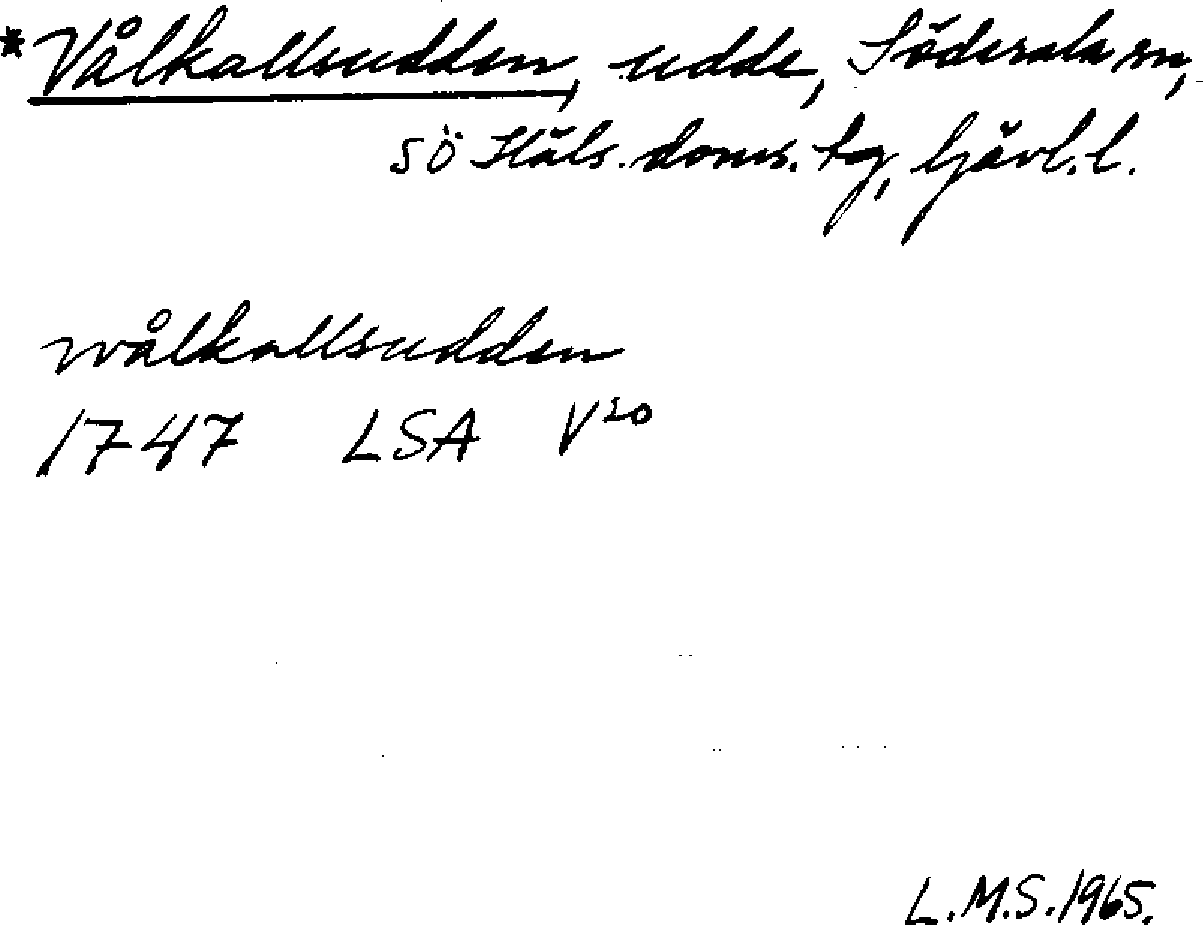 *Vålkallsudden, udde, Söderala sn,
sö Häls. doms. tg, Gävl. l.
wålkallsudden
1747 LSA V20
L.M.S. 1965.